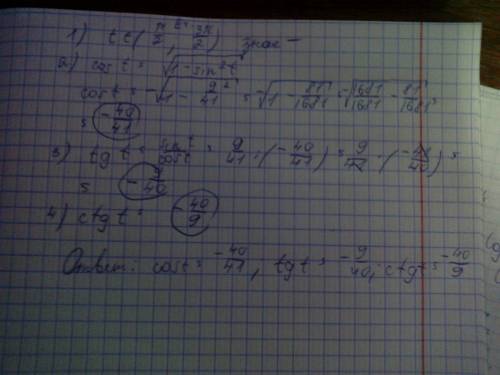 1) t ∈ (π/2; 3π/2) знак −
2) cos t = √1 − sin²t
cos t = −√1 − 9/41² = −√1 − 81/1681 = −√1681/1681 − 81/1681 =
= −40/41
3) tg t = sin t/cos t = 9/41 : (−40/41) = 9/41 · (−41/40) =
= −9/40
4) ctg t = −40/9
Ответ: cos t = −40/41; tg t = −9/40; ctg t = −40/9